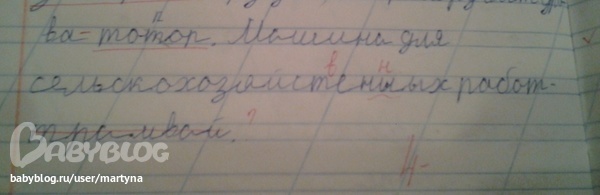 п
ва- тотор. Машина для
в н
сельскохозяйстеных работ-
трамвай. ?
4-
BABYBLOG
babyblog.ru/user/martyna